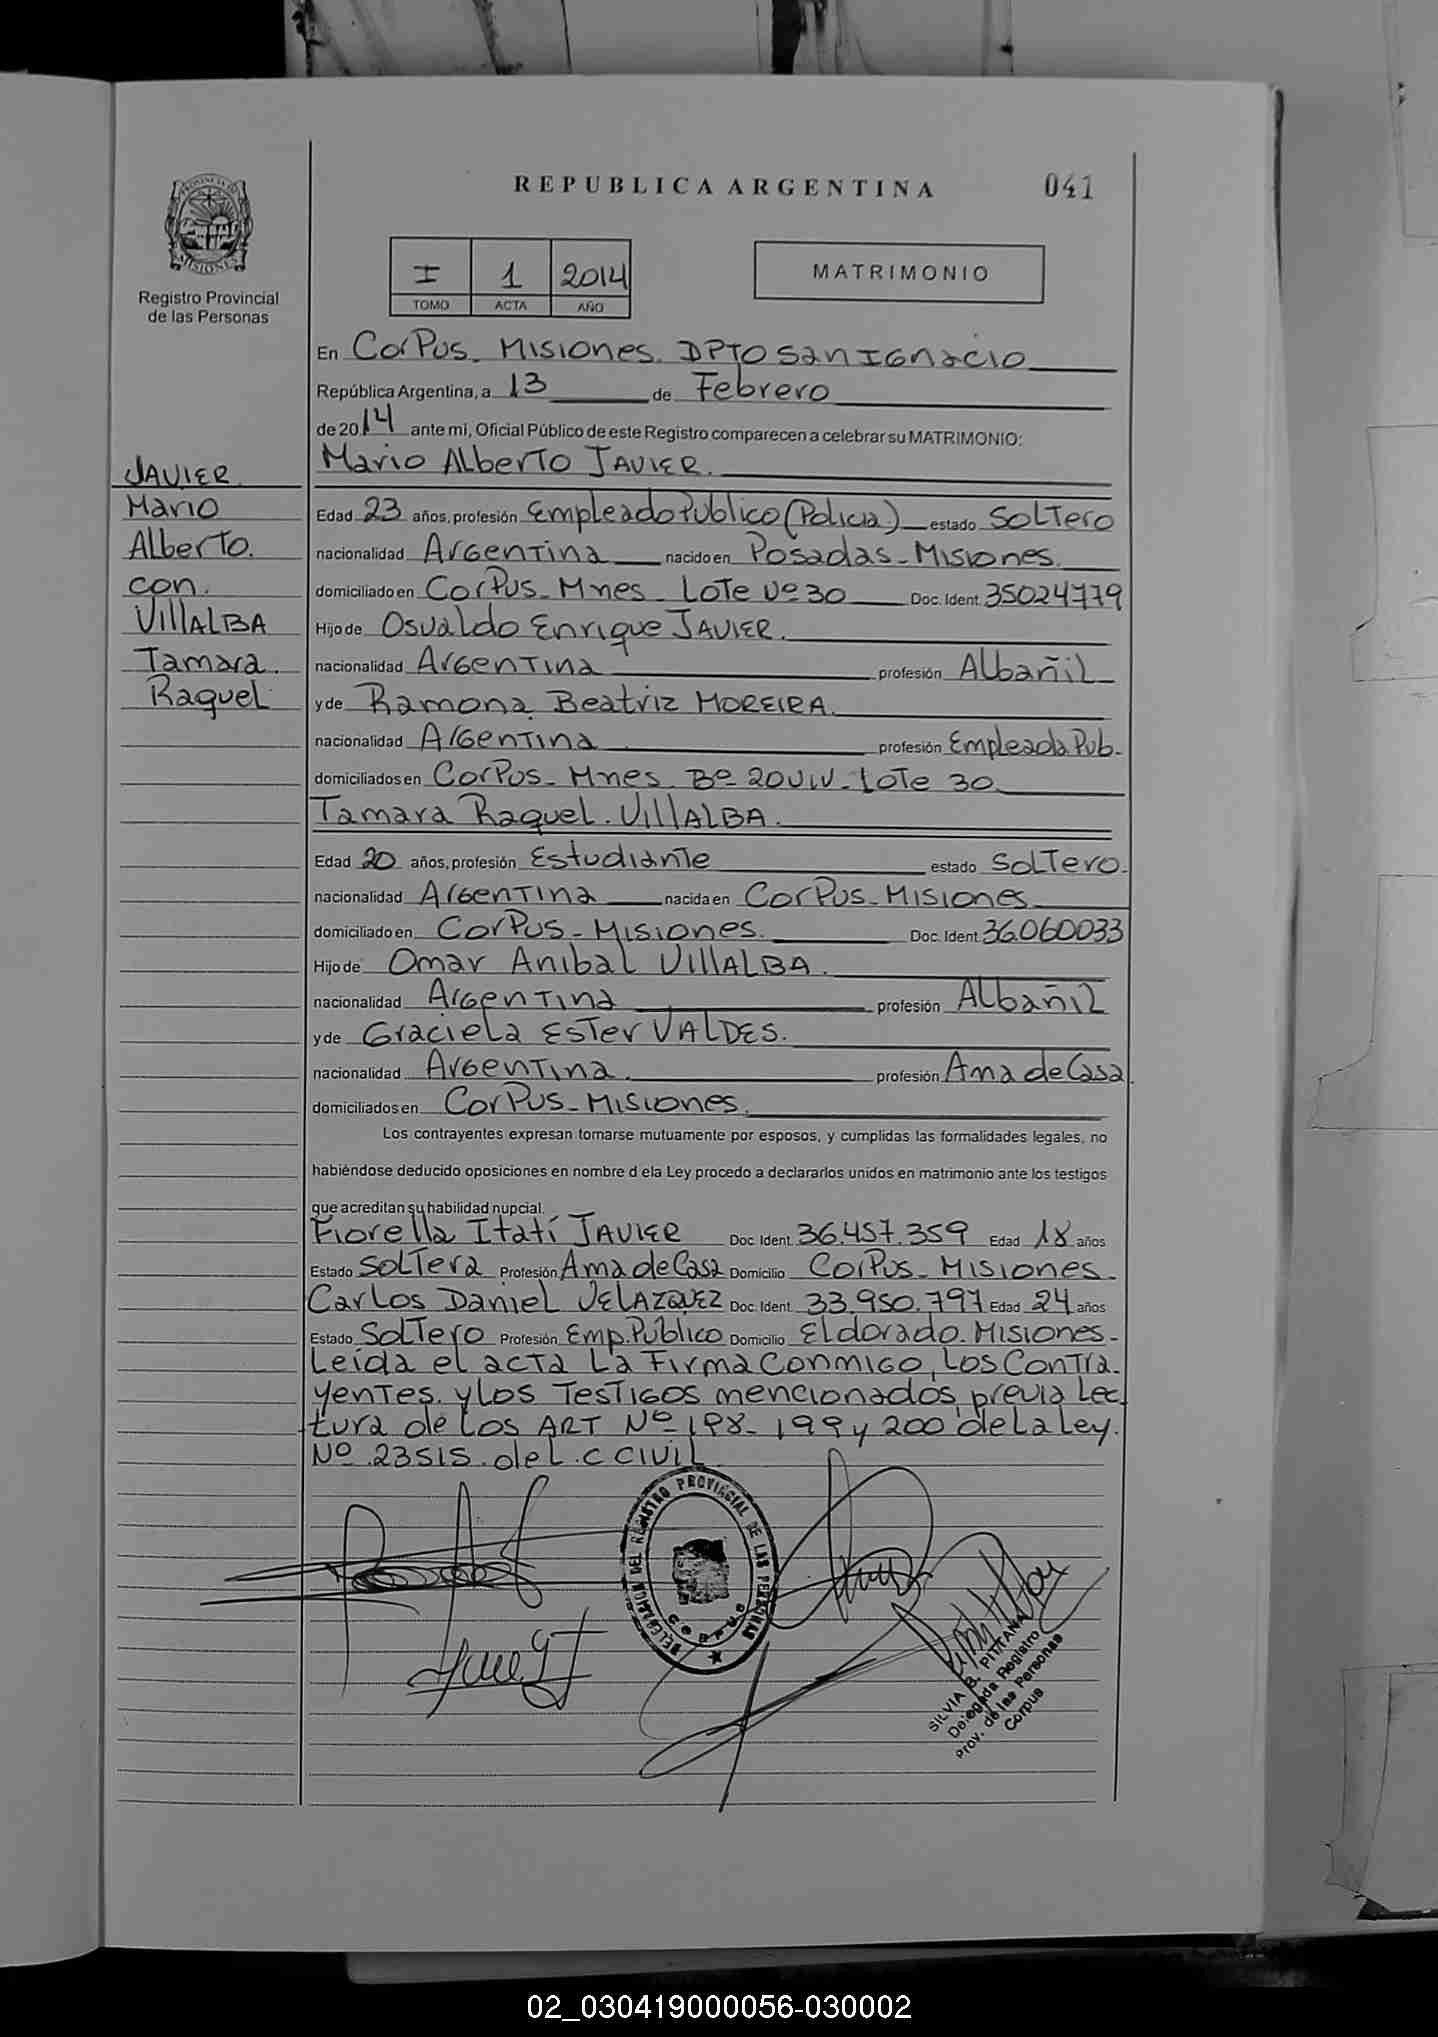 REPUBLICA ARGENTINA
041
PROVINCIA DE
MISIONES
Registro Provincial
de las Personas
I 1 2014
TOMO ACTA AÑO
MATRIMONIO
En Corpus - Misiones. DPTO San Ignacio
República Argentina, a 13 de Febrero
de 2014 ante mi, Oficial Público de este Registro comparecen a celebrar su MATRIMONIO:
Mario Alberto JAVIER.
JAVIER
Mario
Alberto.
con.
VillALBA
Tamara.
Raquel
Edad 23 años, profesión Empleado Publico (Policia) estado Soltero
nacionalidad Argentina nacido en Posadas - Misiones.
domiciliado en Corpus - Mnes - Lote Nº 30 Doc. Ident. 35024779
Hijo de Osvaldo Enrique JAVIER.
nacionalidad Argentina profesión Albañil
y de Ramona Beatriz MOREIRA.
nacionalidad Argentina profesión Empleada Pub.
domiciliados en Corpus - Mnes Bº 20 Viv - Lote 30
Tamara Raquel. VillALBA.
Edad 20 años, profesión Estudiante estado Soltero.
nacionalidad Argentina nacida en Corpus - Misiones
domiciliado en Corpus - Misiones. Doc. Ident. 36.060033
Hijo de Omar Anibal VillALBA.
nacionalidad Argentina profesión Albañil
y de Graciela Ester VALDES.
nacionalidad Argentina. profesión Ama de Casa.
domiciliados en Corpus - Misiones.
Los contrayentes expresan tomarse mutuamente por esposos, y cumplidas las formalidades legales, no
habiéndose deducido oposiciones en nombre d ela Ley procedo a declararlos unidos en matrimonio ante los testigos
que acreditan su habilidad nupcial.
Fiorella Itatí JAVIER Doc. Ident. 36.457.359 Edad 18 años
Estado Soltera Profesión Ama de Casa Domicilio Corpus - Misiones.
Carlos Daniel VELAZQUEZ Doc. Ident. 33.950.797 Edad 24 años
Estado Soltero Profesión Emp. Publico Domicilio Eldorado. Misiones -
Leida el acta La Firma Conmigo, Los Contra.
yentes. y Los Testigos mencionados, previa Lec
tura de Los ART Nº 198 - 199 y 200 de La Ley.
Nº 23515. del. C CIVIL
DELEGACION DEL REGISTRO PROVINCIAL DE LAS PERSONAS
CORPUS
SILVIA B. PITTANA
Delegada Registro
Prov. de las Personas
Corpus
02_030419000056-030002